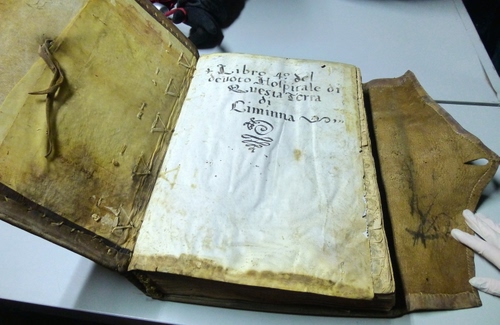 Libro 4º del
devoto Hospitale di
Questa Terra
di
Ciminna